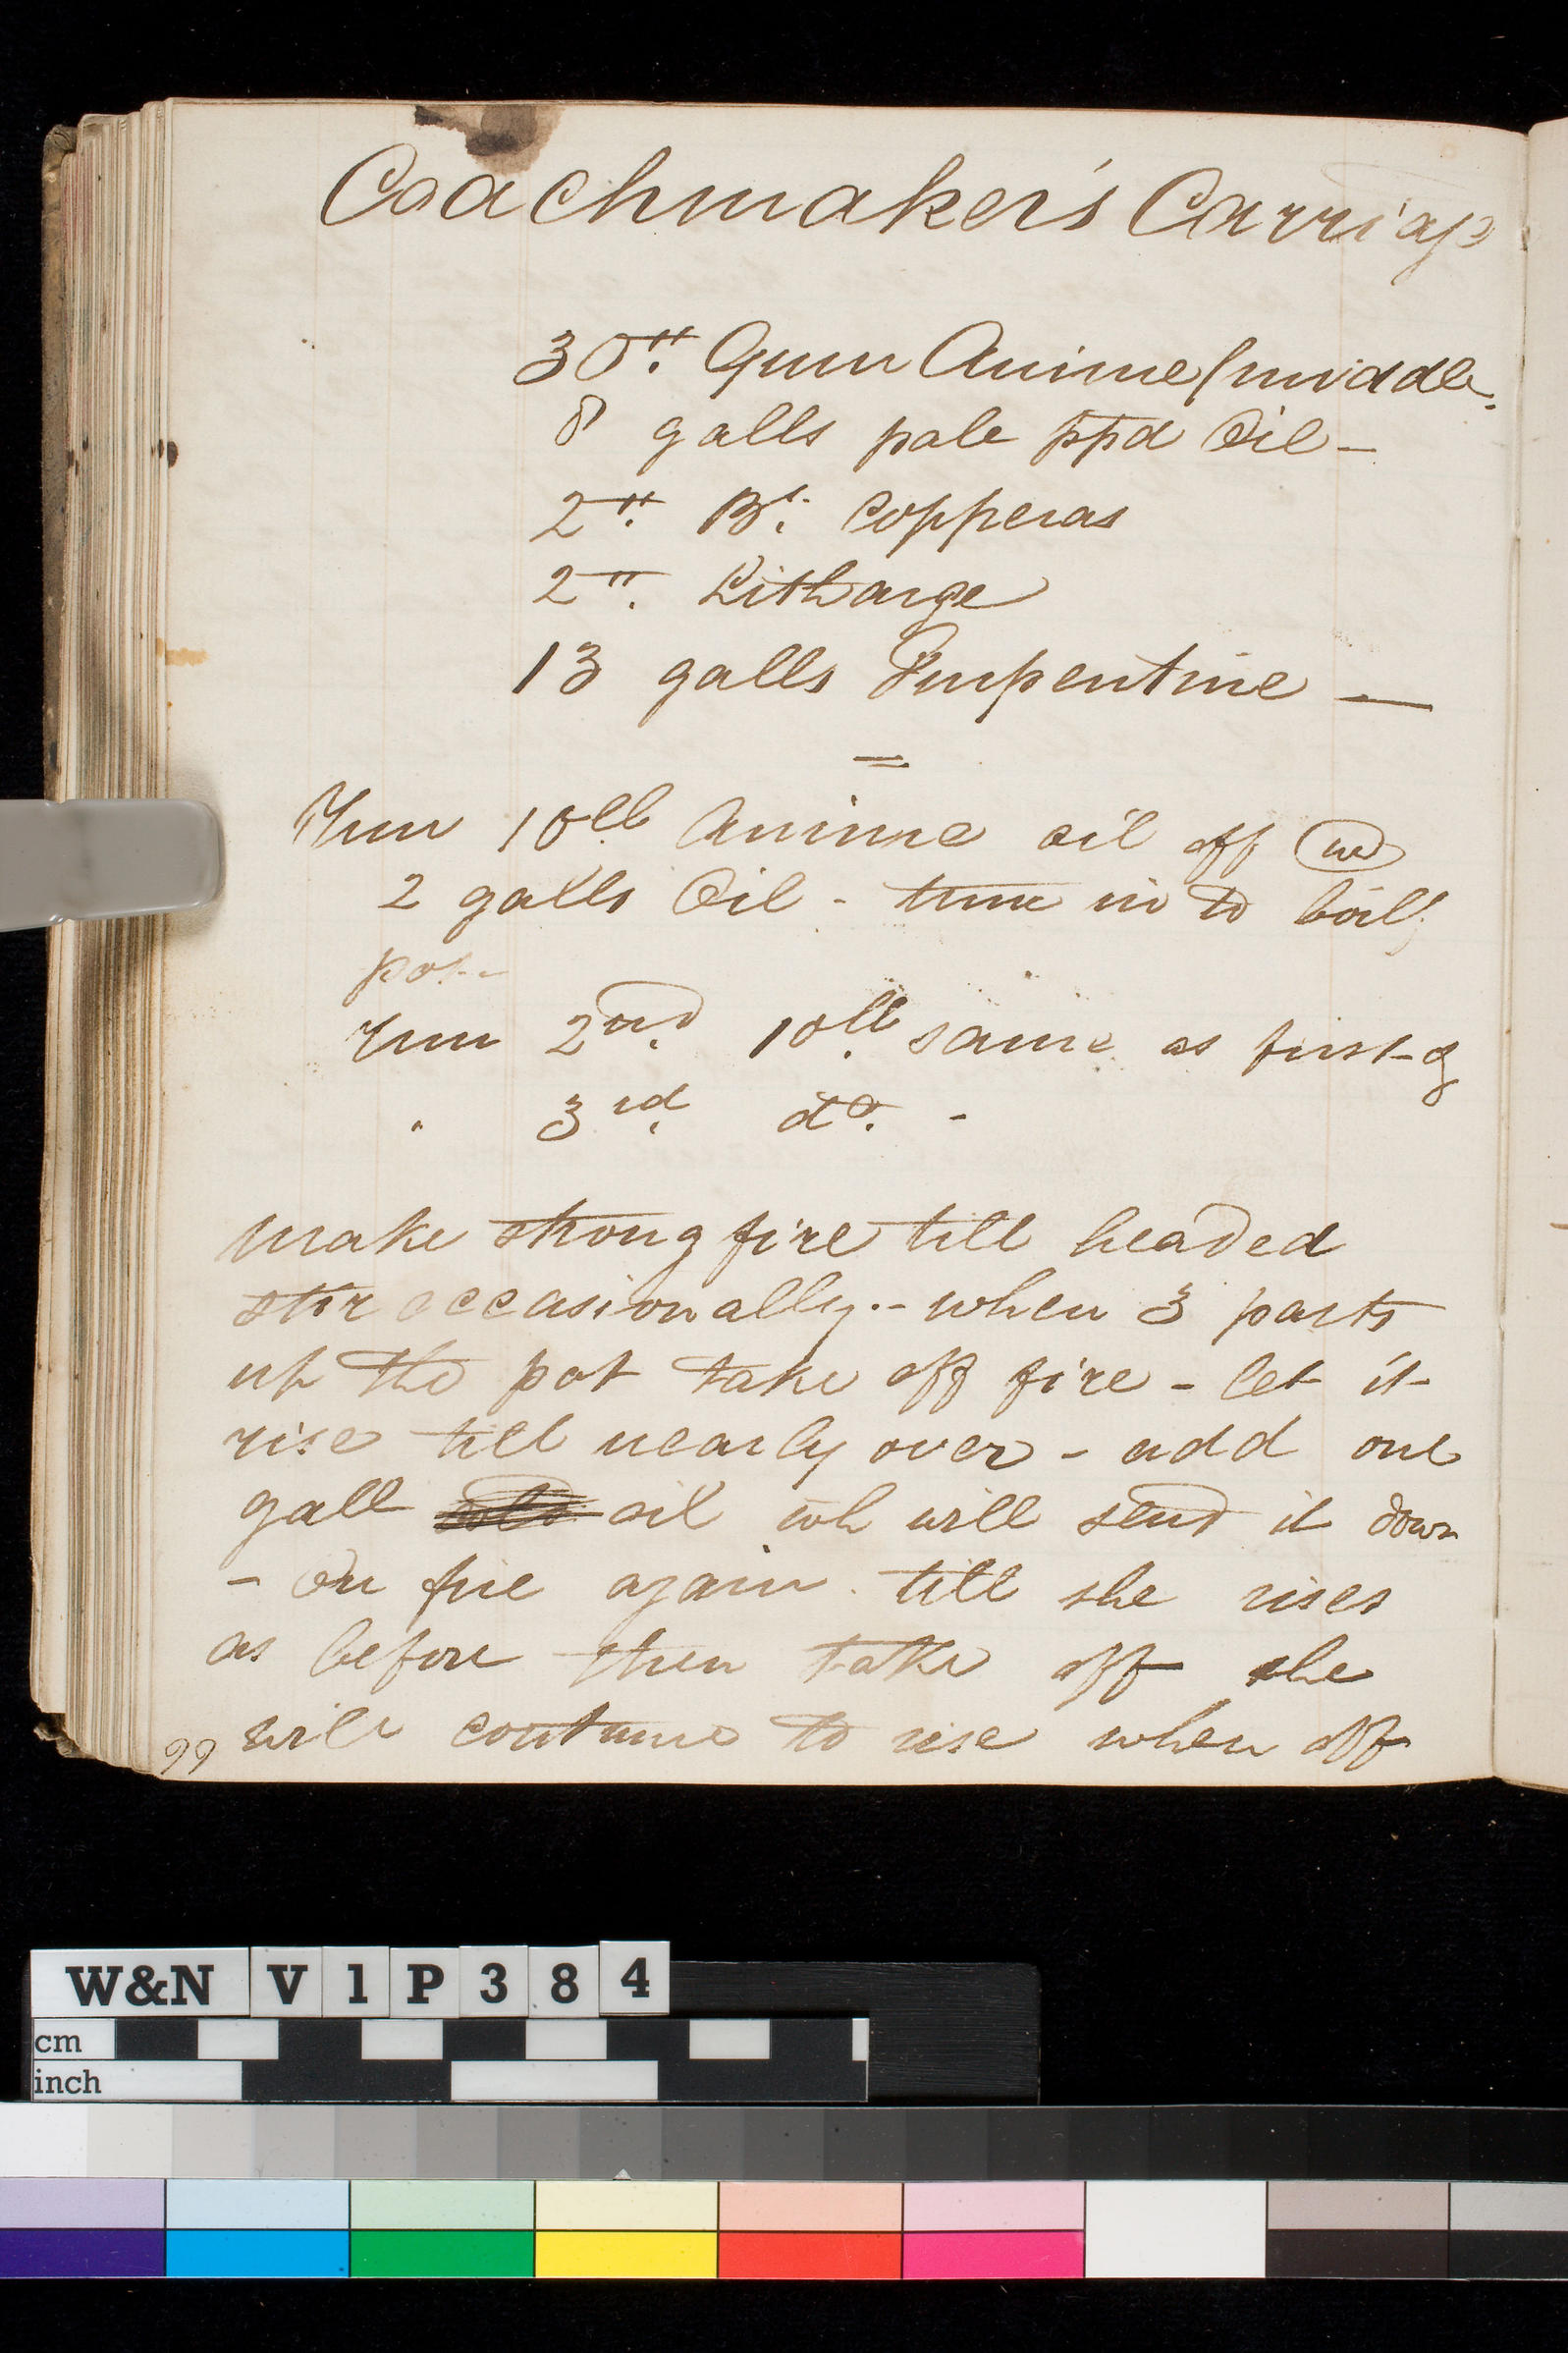 Coachmaker's Carriage
30 lb. Gum Anime/middle.
8 galls pale ppd Oil -
2 lb. Bt. Copperas
2 lb. Litharge
13 galls Turpentine —
=
Run 10 lb Anime oil off wd
2 galls Oil - turn in to boilg
pot -
Run 2nd. 10 lb. same as first - &
" 3rd. do. -
make strong fire till headed
stir occasionally. - when 3 parts
up the pot take off fire - let it
rise till nearly over - add one
gall oil wh will send it down
- On fire again till she rises
as before then take off she
will continue to rise when off
99
W&N V1P384
cm
inch